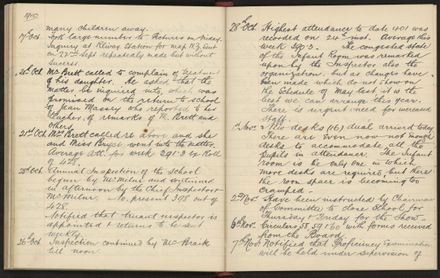 1910
many children away.
17th Oct Took large number to Pictures on Friday.
Inquiry at Railway Station for map N.Z. sent
on 27th Sept repeatedly made but without
success.
20th Oct Mr Brett called to complain of treatment
of his daughter. He asked that the
matter be inquired into, which was
promised on the return to school
of Jean Massey who reported to her
Teacher, of remarks of M. Brett and
others
21st Oct Mr Brett called re above and she
and Miss Bruce went into the matter.
Average att. for week 391.3 by Roll
of 429.
25th Oct Annual Inspection of the school
begun by Mr Milne and continued
in afternoon by the Chief Inspector
Mr Milne. No. present 398 out of
428.
Notified that tenant respector is
appointed & returns to be sent
weekly.
26th Oct Inspection continued by Mr Braik
till noon.
28th Oct Highest attendance to date 401 was
recorded on 24th inst. Average this
week 391.3. The congested state
of the Infant Room was remarked
upon by the Inspector also the
organization but as changes have
been made which do not show on
the Schedule of May last it is the
best we can arrange this year.
There is urgent need for increased
staff.
1st Nov 2 New desks (16) dual arrived today
There are even now not enough
desks to accommodate all the
pupils in attendance. The Infant
room is the only one in which
more desks are required but here
the room space is becoming too
cramped.
2nd Nov Have been instructed by Chairman
of Committee to close School for
Thursday & Friday for the Show.
6th Nov Circular 59/60 with forms received
from the Board.
7th Nov Notified that Proficiency Examination
will be held under supervision of